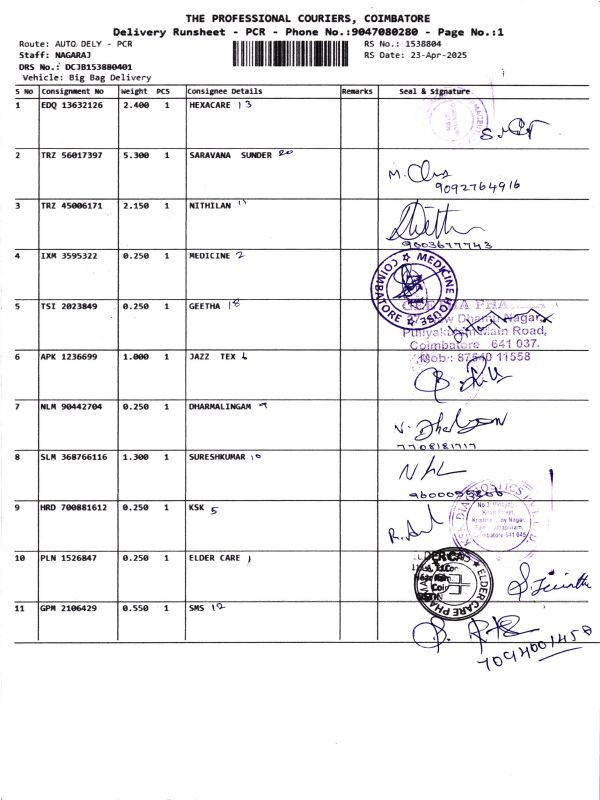 THE PROFESSIONAL COURIERS, COIMBATORE
Delivery Runsheet - PCR - Phone No.:9047080280 - Page No.:1
Route: AUTO DELY - PCR RS No.: 1538804
Staff: NAGARAJ RS Date: 23-Apr-2025
DRS No.: DCJB153880401
Vehicle: Big Bag Delivery
S No Consignment No Weight PCS Consignee Details Remarks Seal & Signature
1 EDQ 13632126 2.400 1 HEXACARE 13
2 TRZ 56017397 5.300 1 SARAVANA SUNDER 20
9092764916
3 TRZ 45006171 2.150 1 NITHILAN 11
9003677743
4 IXM 3595322 0.250 1 MEDICINE 2
MEDICINE HOUSE COIMBATORE
5 TSI 2023849 0.250 1 GEETHA 18
Nagar,
Main Road,
Coimbatore 641 037.
Mob: 87540 11558
6 APK 1236699 1.000 1 JAZZ TEX
7 NLM 90442704 0.250 1 DHARMALINGAM 9
7708181717
8 SLM 368766116 1.300 1 SURESHKUMAR 10
9 HRD 700881612 0.250 1 KSK 5
10 PLN 1526847 0.250 1 ELDER CARE 1
ELDER CARE
11 GPM 2106429 0.550 1 SMS 12
7094001458